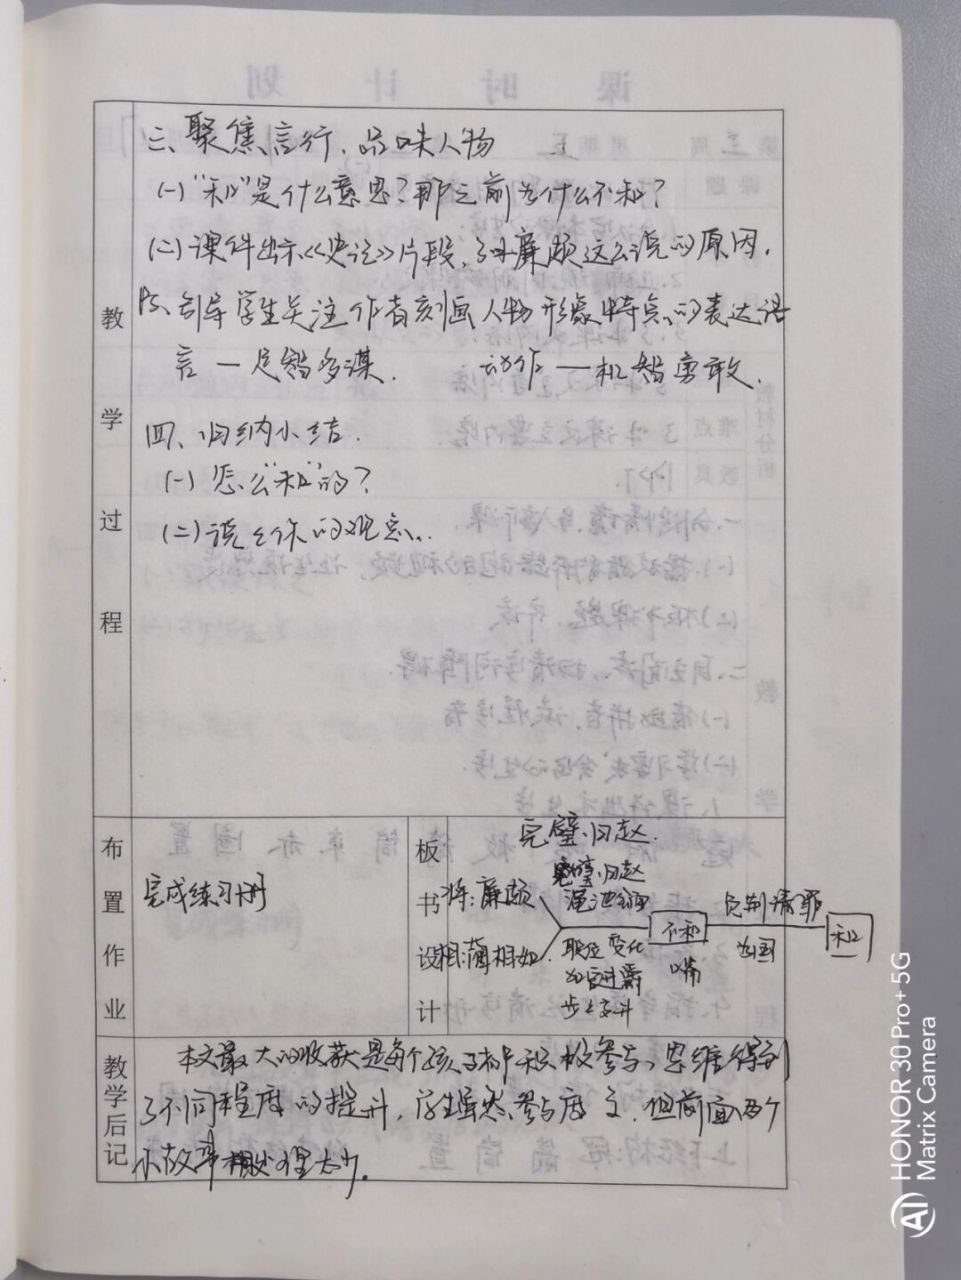 三、聚焦言行，品味人物
(一)“和”是什么意思？那之前为什么不和？
(二)课件出示《史记》片段，了解廉颇这么说的原因.
引导学生关注作者刻画人物形象特点的表达语
言 — 足智多谋. 动作 — 机智勇敢.
四、归纳小结.
(一)怎么“和”的？
(二)说说你的观点.
教学过程
布置作业
完成练习册
板书设计
完璧归赵.
完璧归赵
渑池会面
将：廉颇
相：蔺相如.
职位变化
加官进爵
步步高升
不和
嘴
负荆请罪
为国
和
教学后记
本文最大的收获是每个孩子都积极参与，思维得到
了不同程度的提升，学生虽然参与度高，但前面两个
小故事处理太少.
HONOR 30 Pro+ 5G
Matrix Camera